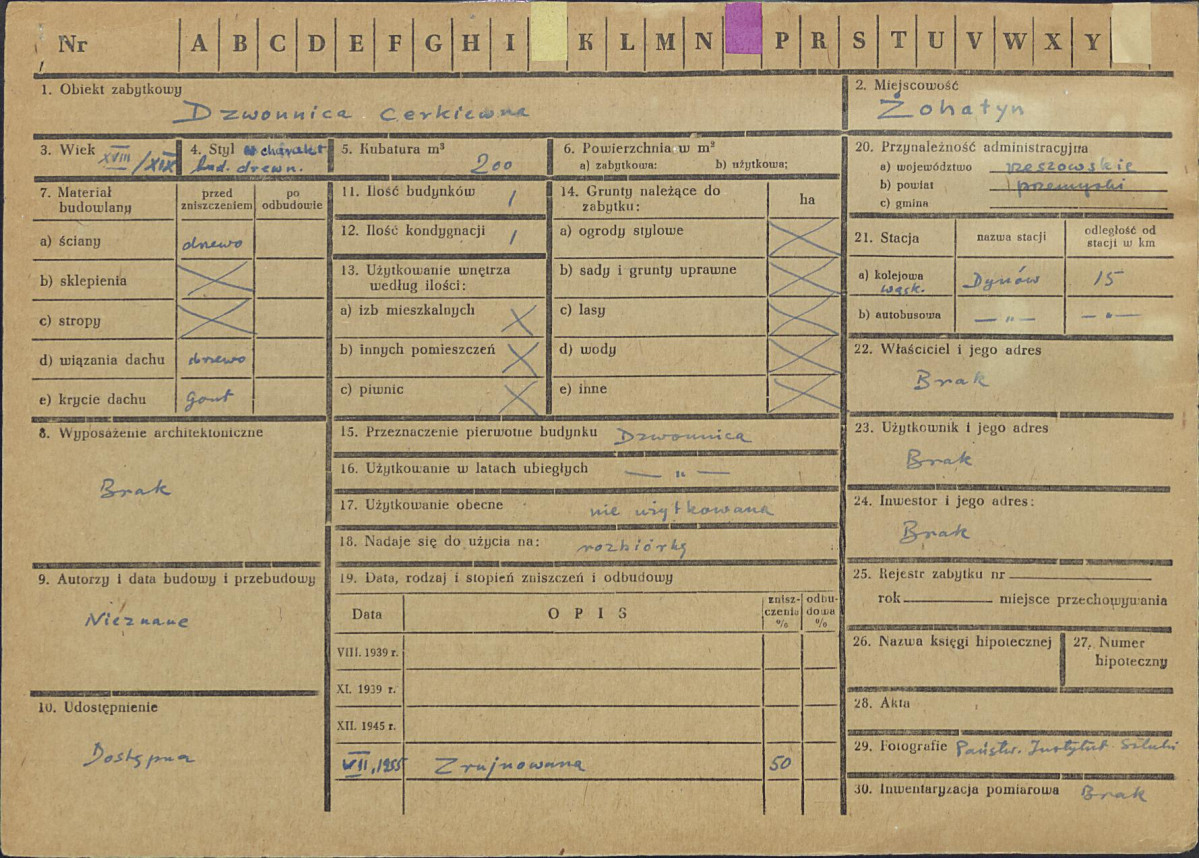 Nr A B C D E F G H I K L M N P R S T U V W X Y
1. Obiekt zabytkowy
Dzwonnica Cerkiewna
2. Miejscowość
Żohatyn
3. Wiek XVIII/XIX
4. Styl w charakt.
bud. drewn.
5. Kubatura m³
200
6. Powierzchnia w m²
a) zabytkowa: b) użytkowa:
20. Przynależność administracyjna
a) województwo rzeszowskie
b) powiat przemyski
c) gmina
7. Materiał budowlany
przed zniszczeniem
po odbudowie
a) ściany drewo
b) sklepienia
c) stropy
d) wiązania dachu drzewo
e) krycie dachu gont
11. Ilość budynków 1
12. Ilość kondygnacji 1
13. Użytkowanie wnętrza
według ilości:
a) izb mieszkalnych
b) innych pomieszczeń
c) piwnic
14. Grunty należące do
zabytku:
ha
a) ogrody stylowe
b) sady i grunty uprawne
c) lasy
d) wody
e) inne
21. Stacja
nazwa stacji
odległość od
stacji w km
a) kolejowa
wąsk.
Dynów 15
b) autobusowa — „ — — „ —
22. Właściciel i jego adres
Brak
8. Wyposażenie architektoniczne
Brak
9. Autorzy i data budowy i przebudowy
Nieznane
10. Udostępnienie
Dostępna
15. Przeznaczenie pierwotne budynku Dzwonnica
16. Użytkowanie w latach ubiegłych — „ —
17. Użytkowanie obecne nie użytkowana
18. Nadaje się do użycia na: rozbiórkę
19. Data, rodzaj i stopień zniszczeń i odbudowy
Data
O P I S
znisz-
czenie
%
odbu-
dowa
%
VIII. 1939 r.
XI. 1939 r.
XII. 1945 r.
VII, 1955 Zrujnowana 50
23. Użytkownik i jego adres
Brak
24. Inwestor i jego adres:
Brak
25. Rejestr zabytku nr
rok miejsce przechowywania
26. Nazwa księgi hipotecznej
27. Numer
hipoteczny
28. Akta
29. Fotografie Państw. Instytut Sztuki
30. Inwentaryzacja pomiarowa Brak